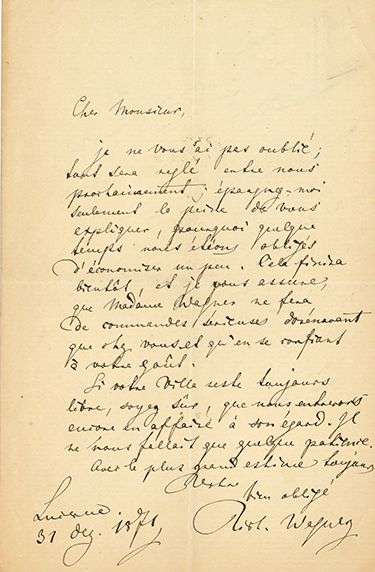 Cher Monsieur,
je ne vous ai pas oublié;
tout sera reglé entre nous
prochainement; épargnez-moi
seulement la peine de vous
expliquer, pourquoi quelque
temps nous étions obligés
d'économiser un peu. Cela finira
bientôt, et je vous assure,
que Madame Wagner ne fera
de commandes serieuses dorénavant
que chez vous et qu'en se confiant
à votre goût.
Si votre Ville reste toujours
libre, soyez sûr, que nous entrerons
encore en affaire à son égard. Il
ne vous fallait que quelque patience.
Avec le plus grand estime toujours
Votre
bien obligé
Rich. Wagner
Lucerne.
31 dez. 1871